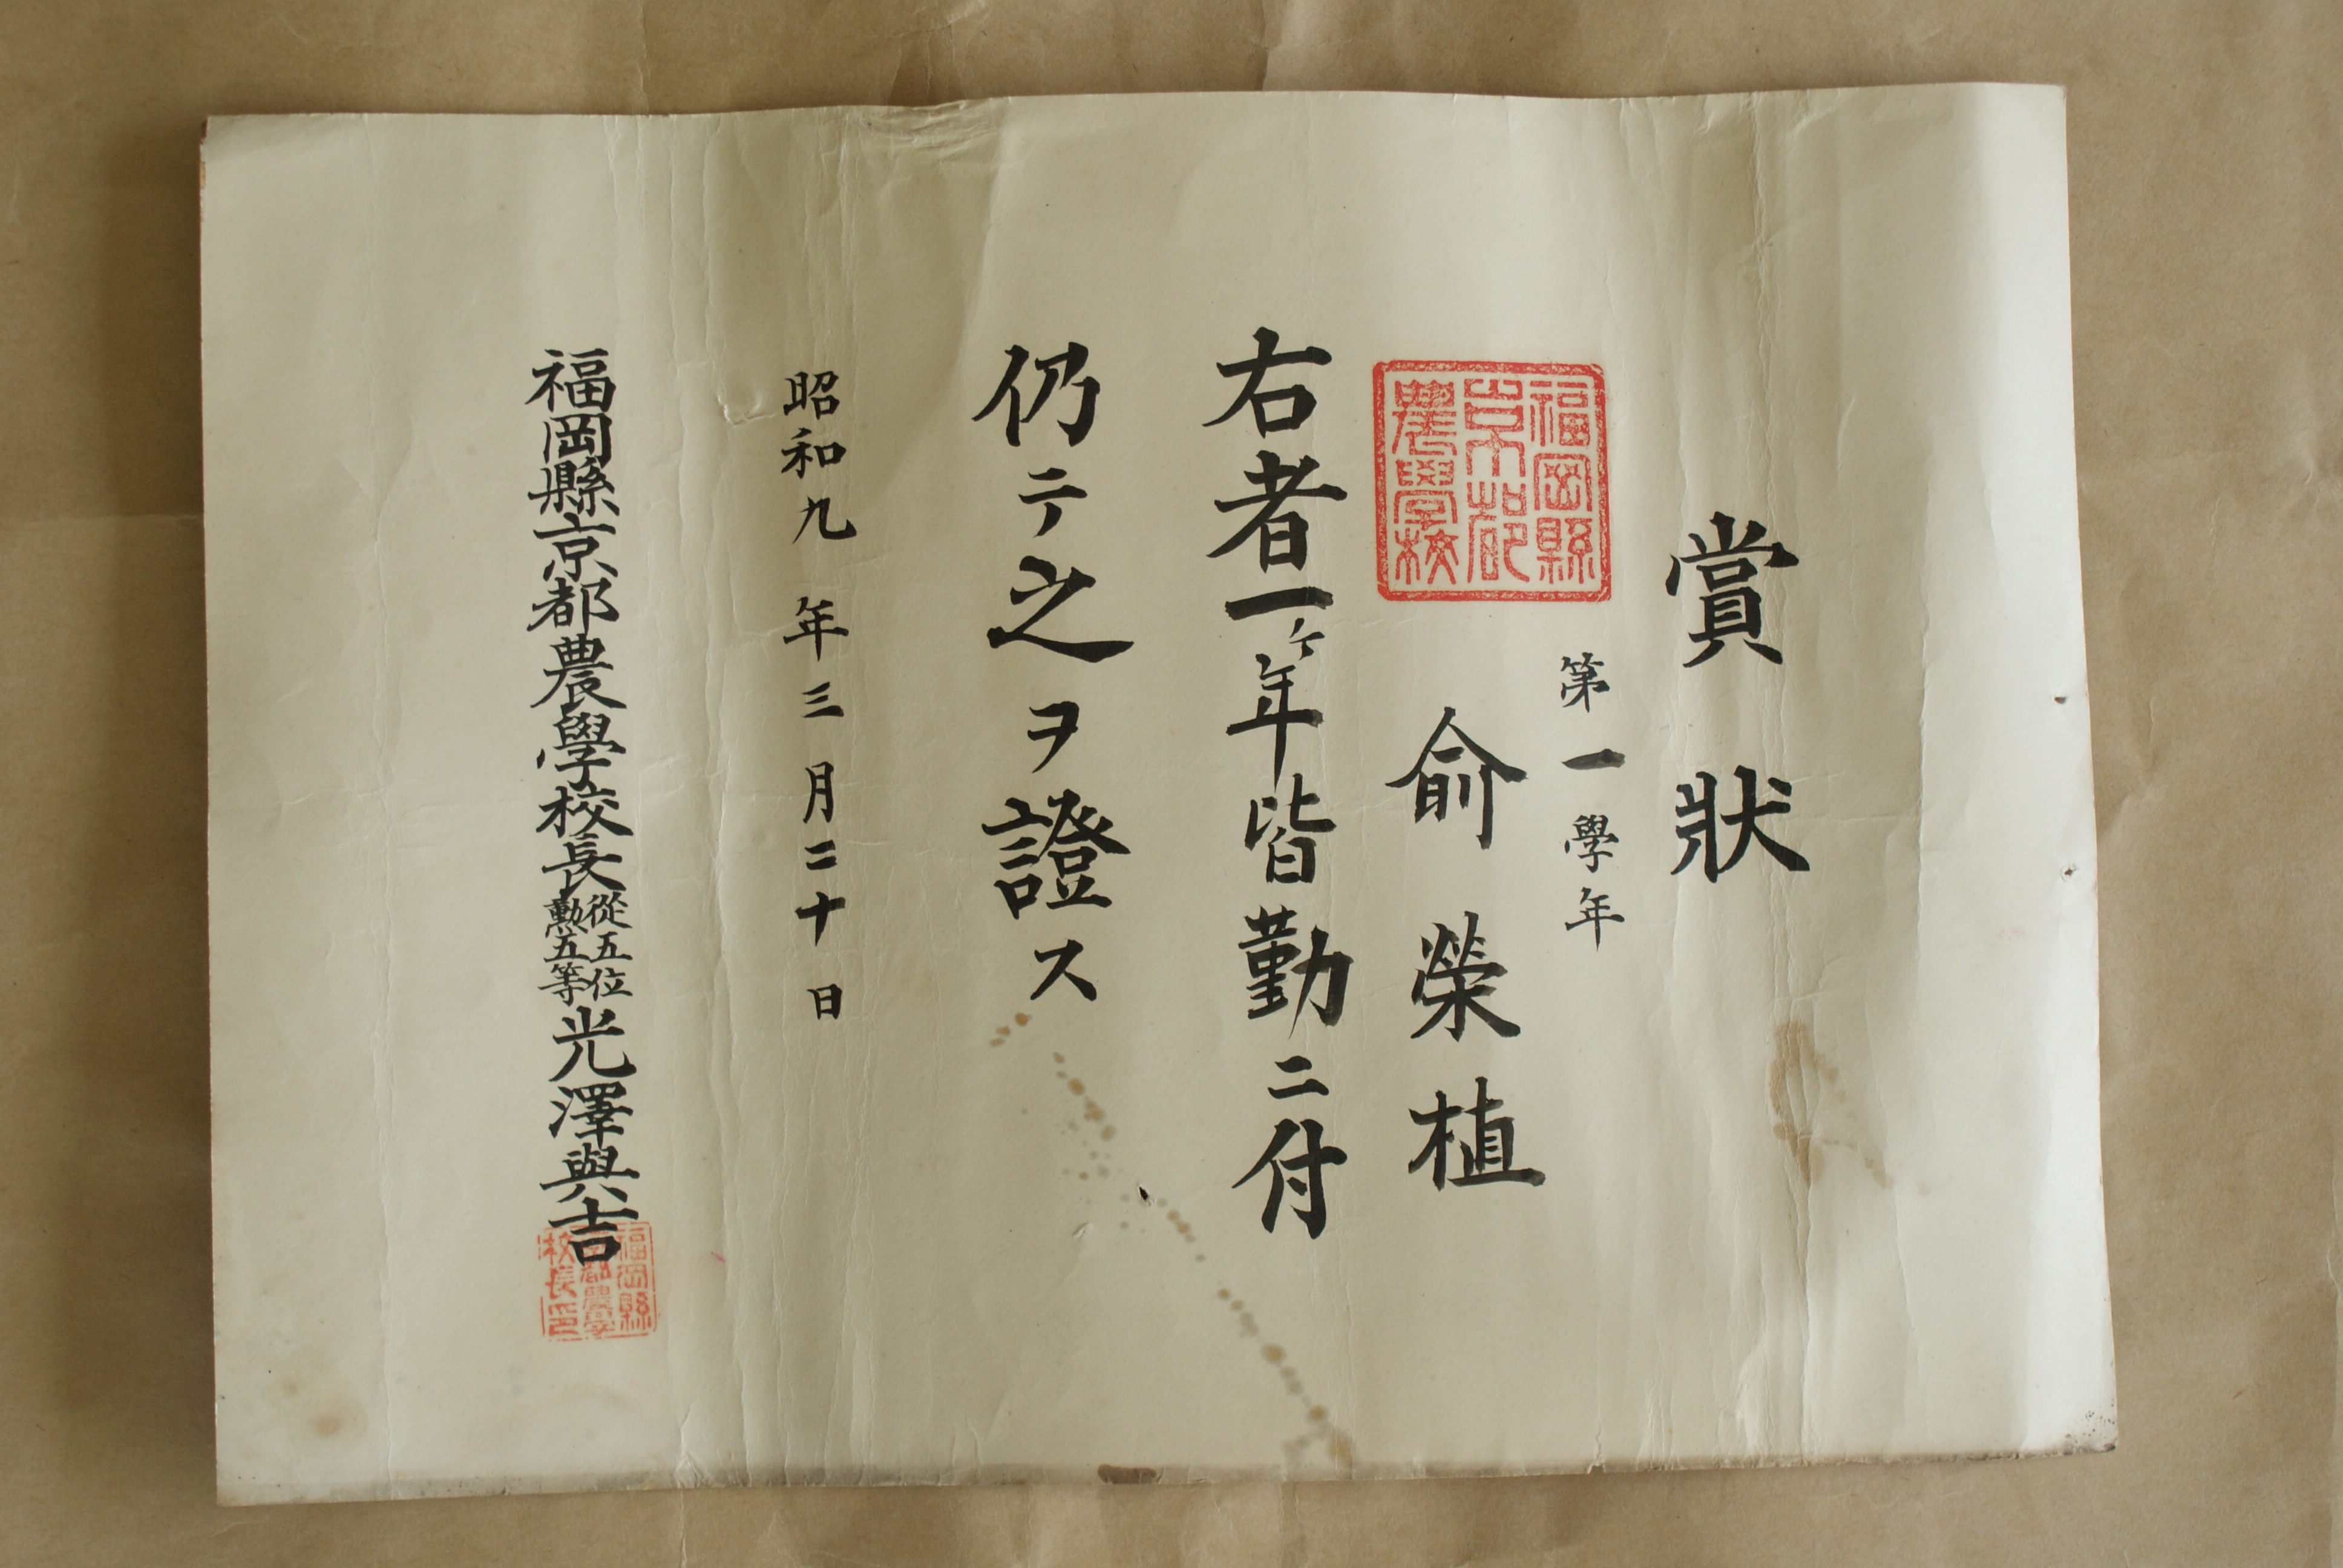 賞狀
第一學年
福岡縣京都農學校
俞榮植
右者一ヶ年皆勤ニ付
仍テ之ヲ證ス
昭和九年三月二十日
福岡縣京都農學校長從五位勳五等光澤與吉
福岡縣京都農學校長印